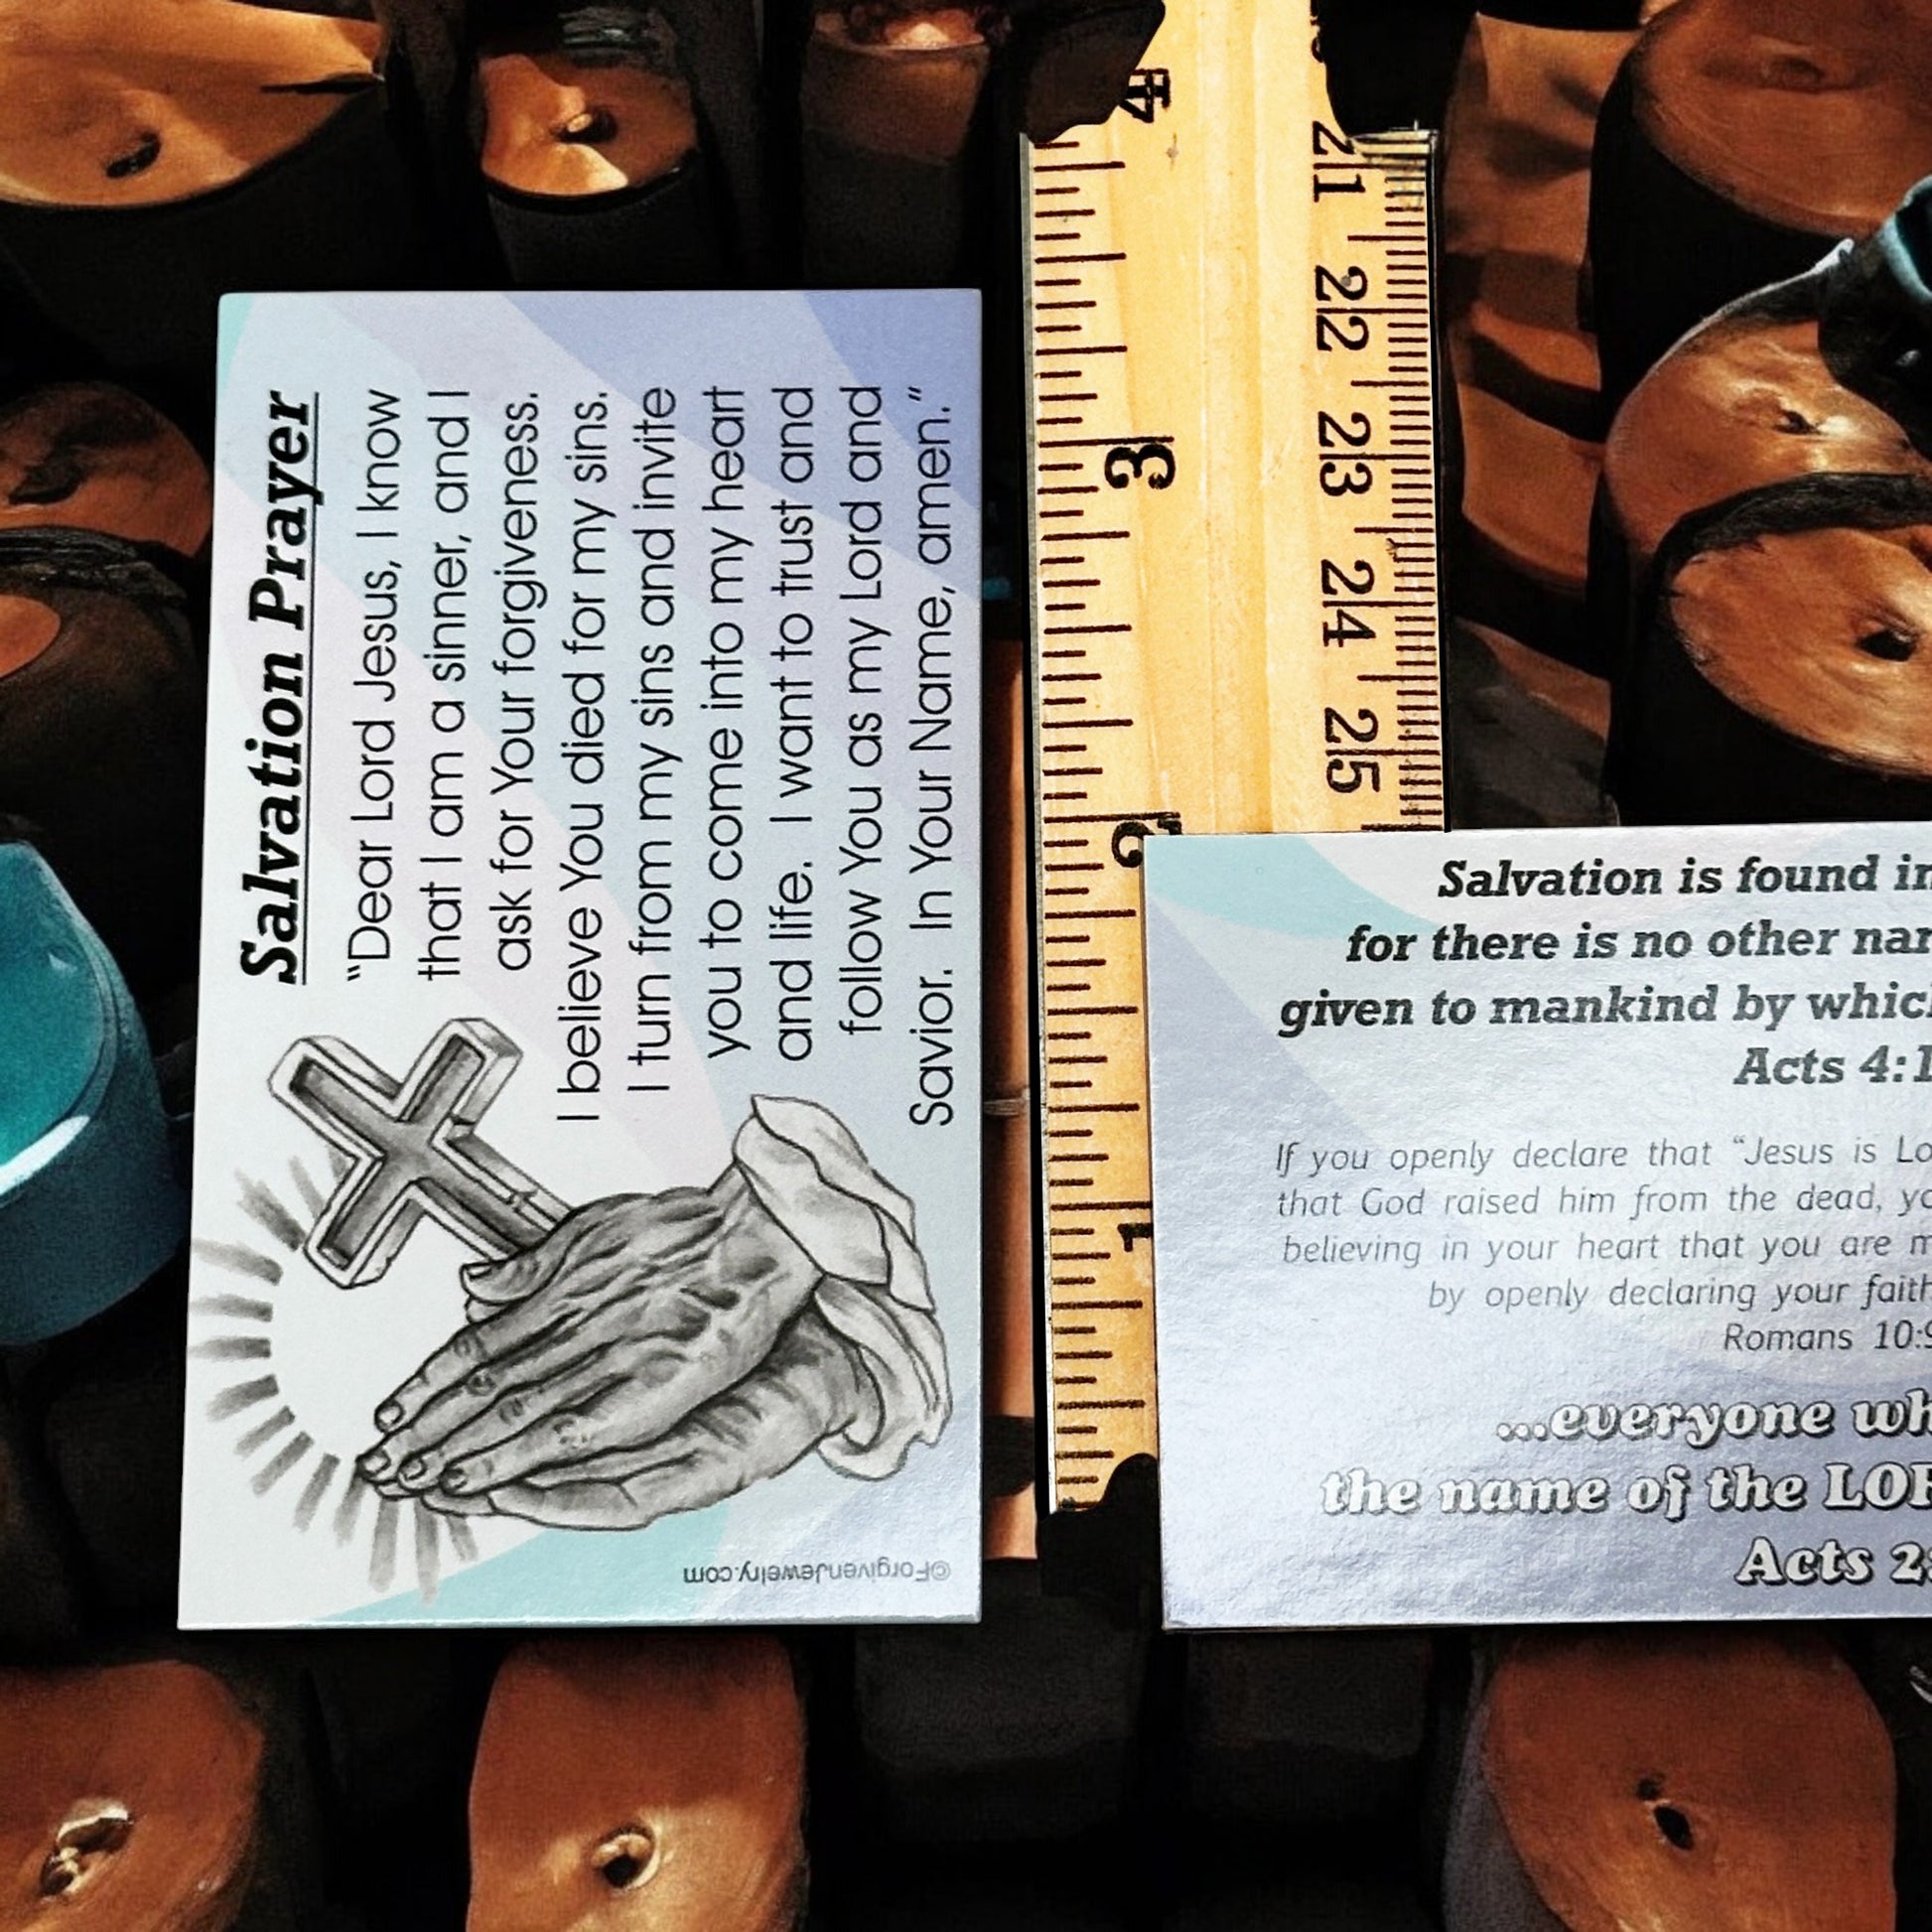 Salvation Prayer
“Dear Lord Jesus, I know
that I am a sinner, and I
ask for Your forgiveness.
I believe You died for my sins.
I turn from my sins and invite
you to come into my heart
and life. I want to trust and
follow You as my Lord and
Savior. In Your Name, amen.”
©ForgivenJewelry.com
4
3
2
1
21
22
23
24
25
Salvation is found in
for there is no other
given to mankind by
Acts
If you openly declare that “Jesus is
that God raised him from the dead,
believing in your heart that you are
by openly declaring your
Romans
...everyone
the name of the
Acts